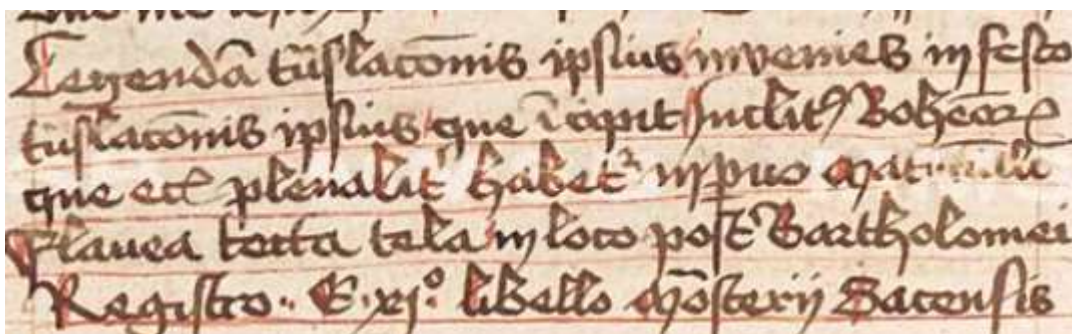 Legendā tūslacōnis ipsius invenies in festo
tūslacōnis ipsius que īcipit Inclit9 Bohēorꝝ
que etꝭ plenalit' habet᷑ in paruo
flavea tecta tela in loco post Bartholomei
Registro · E · xjº libello Mōsterij Sacensis